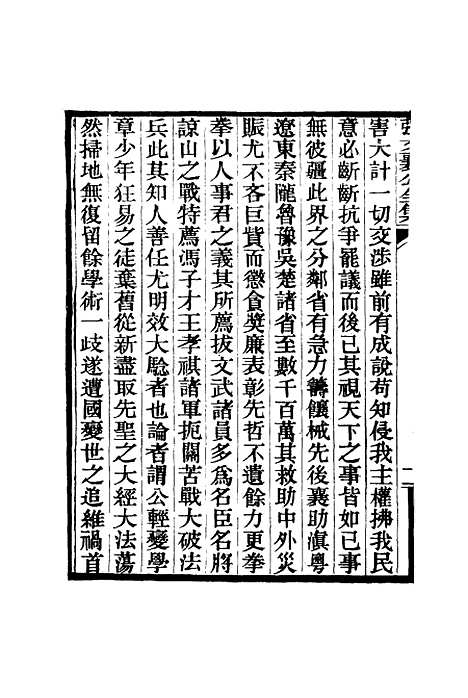 害大計一切交涉雖前有成說苟知侵我主權拂我民
意必斷斷抗爭罷議而後已其視天下之事皆如已事
無彼疆此界之分鄰省有急力籌饟械先後襄助滇粵
遼東秦隴魯豫吳楚諸省至數千百萬其救助中外災
賑尤不吝巨貲而懲貪奬廉表彰先哲不遺餘力更拳
拳以人事君之義其所薦拔文武諸員多爲名臣名將
諒山之戰特薦馮子才王孝祺諸軍扼關苦戰大破法
兵此其知人善任尤明效大驗者也論者謂公輕變學
章少年狂易之徒棄舊從新盡取先聖之大經大法蕩
然掃地無復留餘學術一歧遂遭國變世之追維禍首